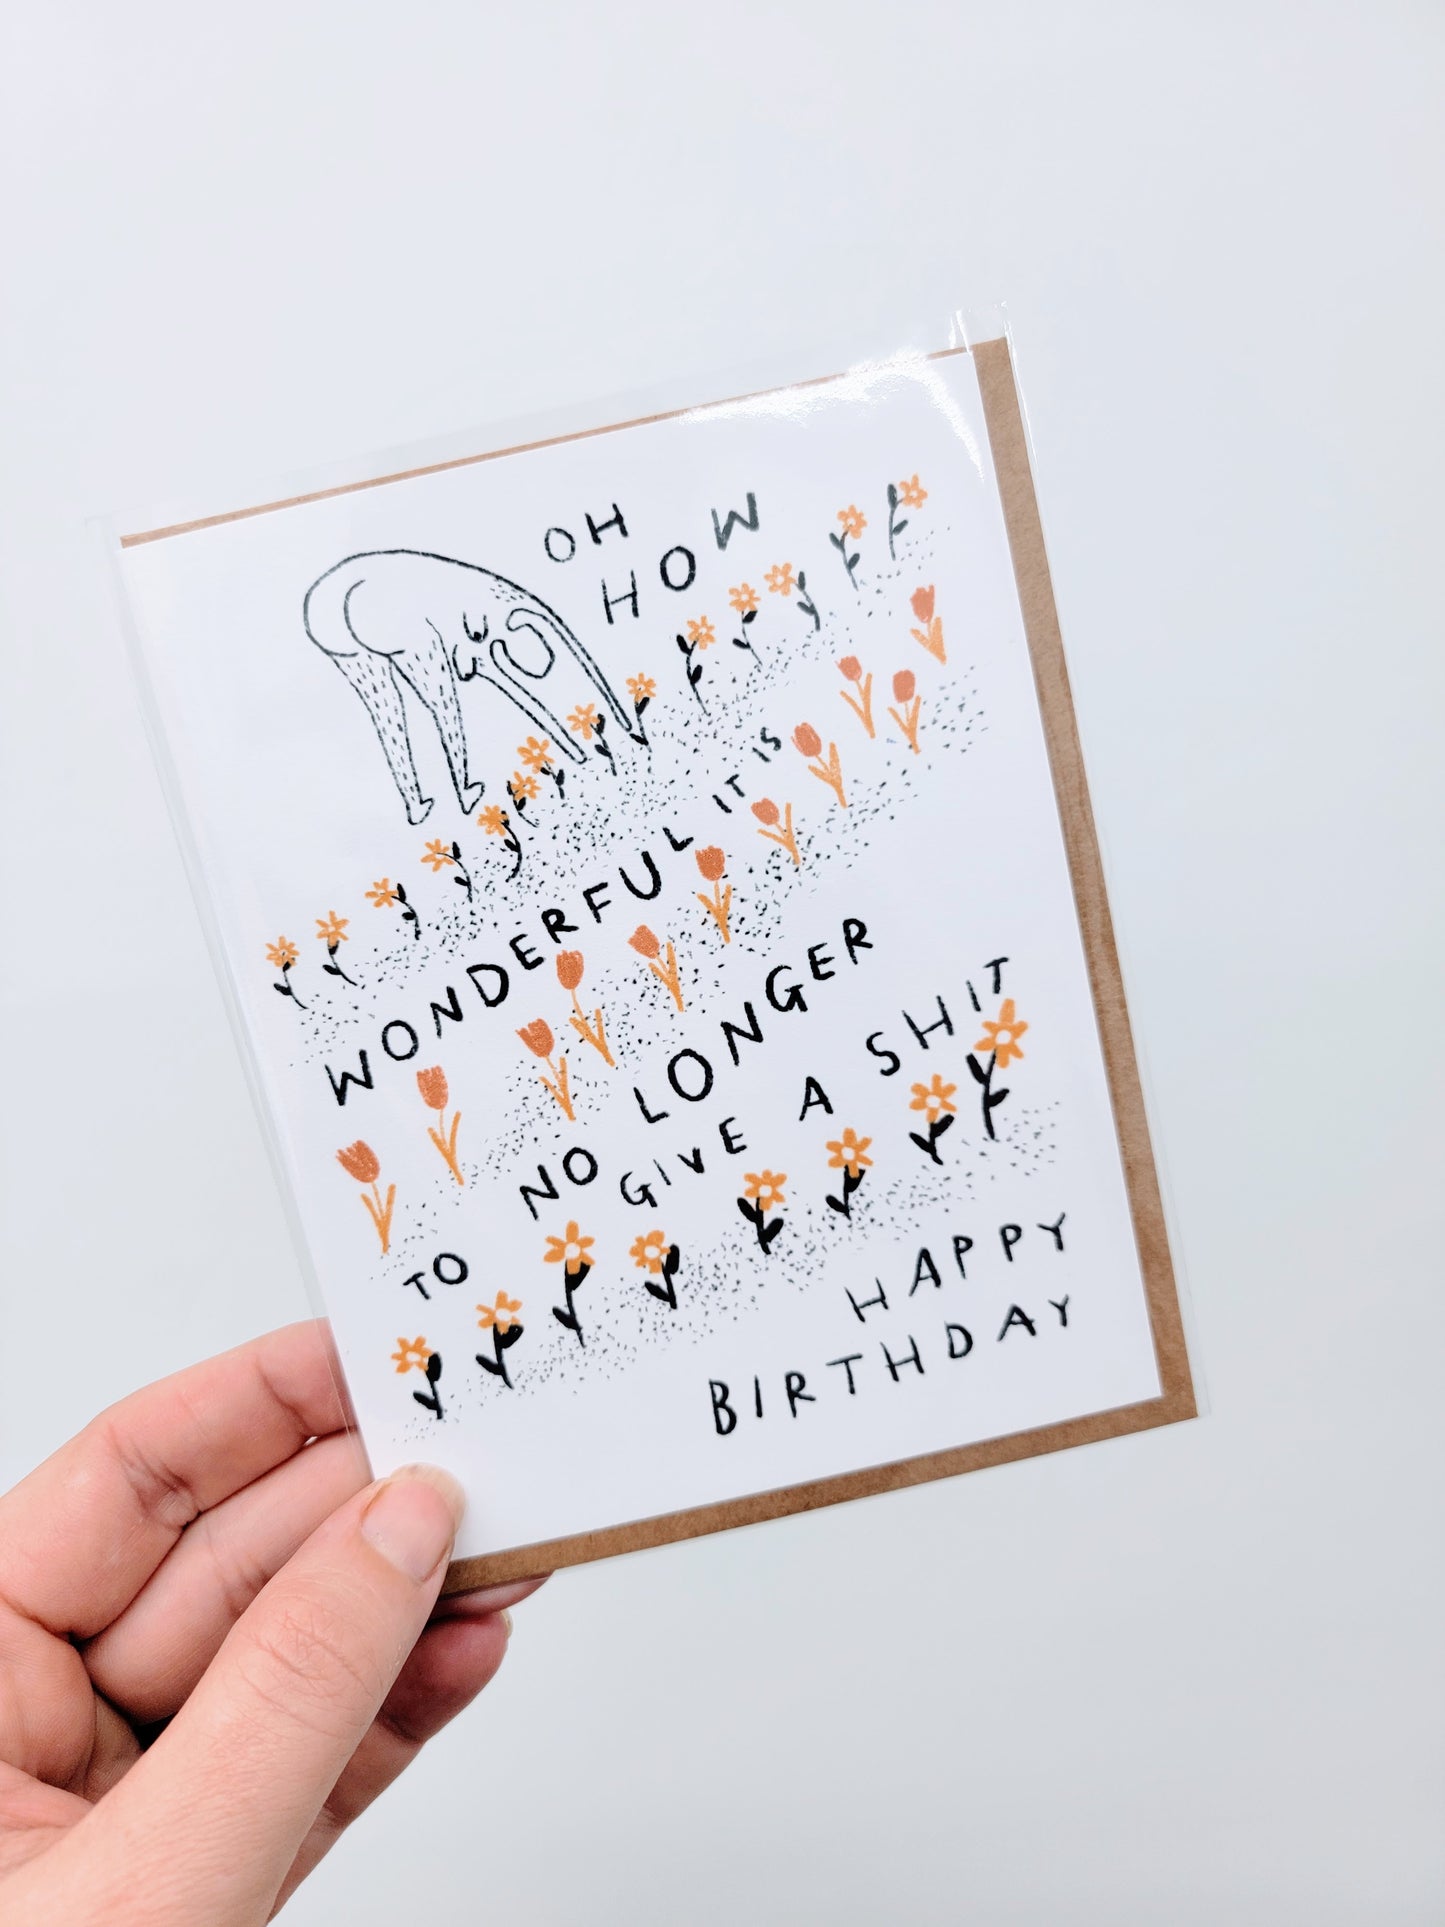 OH
HOW
WONDERFUL IT IS
TO NO LONGER
GIVE A SHIT
HAPPY
BIRTHDAY